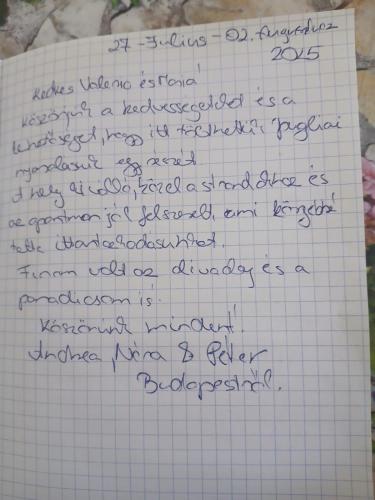 27 - Július - 02. Augusztus
2025
Kedves Valerio és Maria!
Köszönjük a kedvességeteket és a
lehetőséget, hogy itt tölthettük Pugliai
nyaralásunk egy részét.
A hely kiváló, közel a strandokhoz és
az apartman jól felszerelt, ami könnyebbé
tette ittartózkodásunkat.
Finom volt az olivaolaj és a
paradicsom is.
Köszönünk mindent!
Andrea, Nóra & Péter
Budapestről.